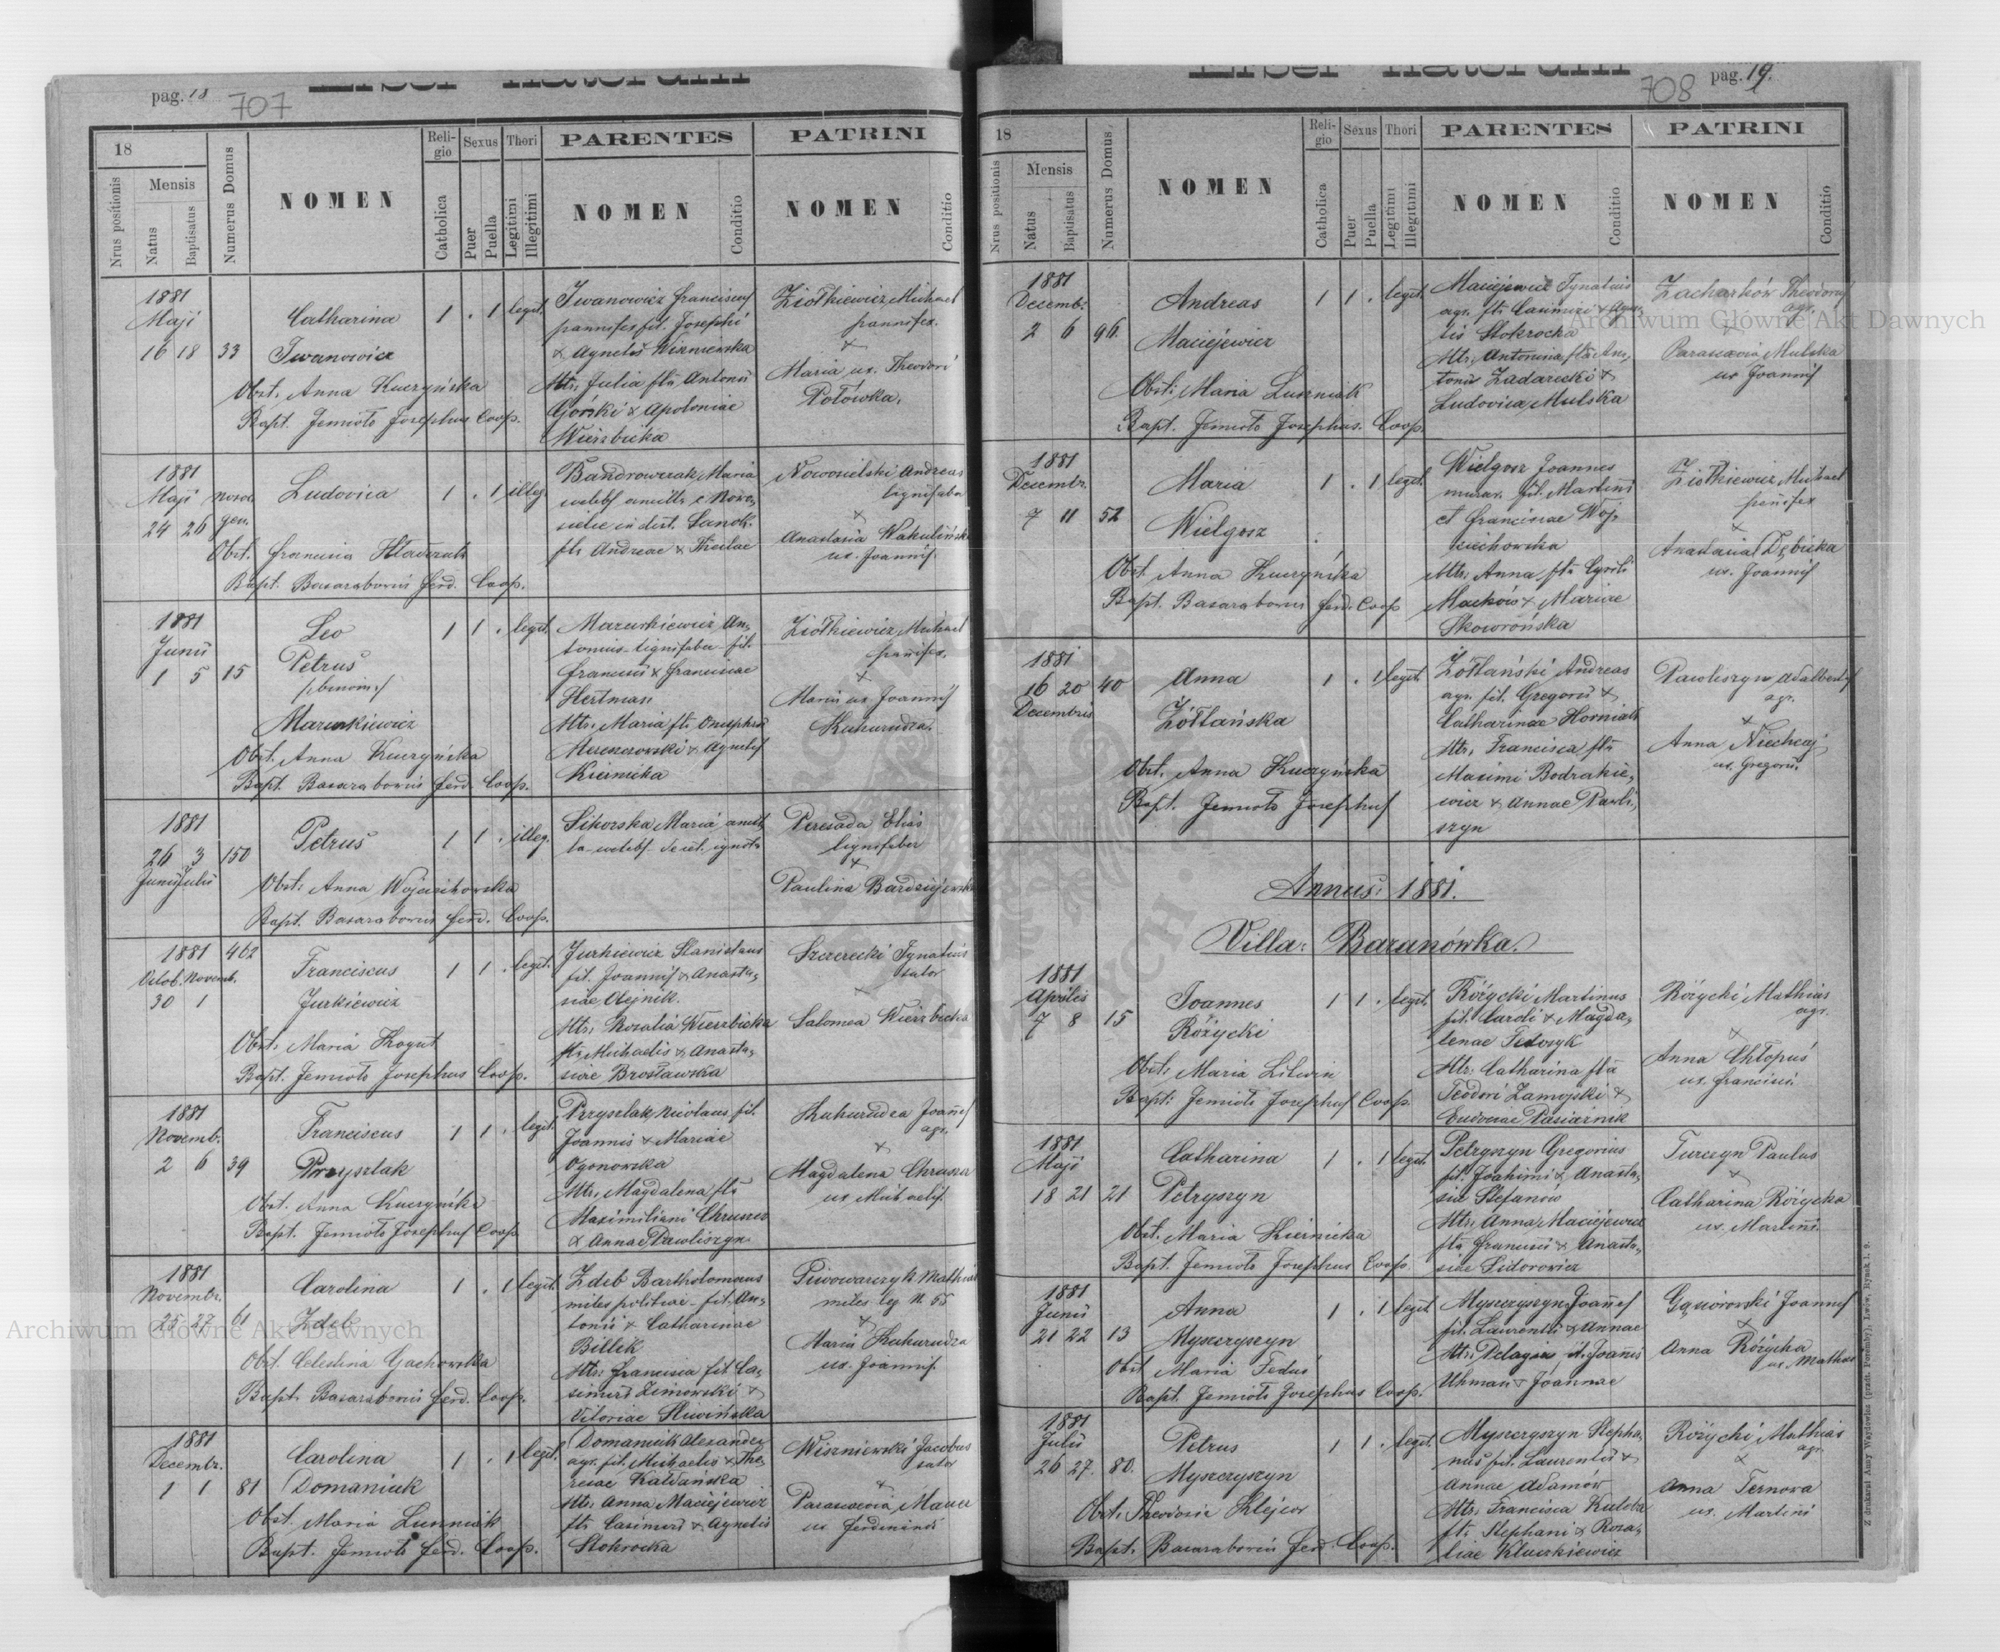 pag. 18
707
Liber natorum
18
Nrus positionis
Mensis
Natus
Baptisatus
Numerus Domus
NOMEN
Religio
Catholica
Sexus
Puer
Puella
Thori
Legitimi
Illegitimi
PARENTES
NOMEN
Conditio
PATRINI
NOMEN
Conditio
1881
Maji
16 18 33
Catharina
Iwanowicz
1 . 1 legit.
Obst. Anna Kuczyńska
Bapt. Jemioło Josephus Coop.
Iwanowicz Franciscus
pannifex fil. Josephi
& Agnetis Wiszniewska
Mtr. Julia flta Antonii
Górski & Apoloniae
Wierzbicka
Ziółkiewicz Michael
pannifex.
Maria ux. Theodori
Połówka.
1881
Maji
24 26
Ludovica
1 . 1 illeg.
Obst. Francisca
Bapt. Basaraborius Ferd. Coop.
Bandrowczak Maria
in dist. Sanok.
flta Andreae & Theclae
Nowosielski Andreas
lignifaber
Anastasia Wakulińska
ux. Joannis.
1881
Junii
1 5 15
Leo
Petrus
Mazurkiewicz
1 1 . legit.
Obst. Anna Kuczyńska
Bapt. Basaraborius Ferd. Coop.
Mazurkiewicz An-
tonius lignifaber fil.
Francisci & Franciscae
Hertman
Mtr. Maria flta Onuphrii
& Agnetis
Kiernicka
Ziółkiewicz Michael
pannifex.
Maria ux. Joannis
Kukurudza.
1881
26 3 150
Junii Julii
Petrus
1 1 . illeg.
Obst. Anna Wojciechowska
Bapt. Basaraborius Ferd. Coop.
Sikorska Maria
Peresada Elias
lignifaber
Paulina Bardziejewska
1881 462
Octob. Novemb.
30 1
Franciscus
Jurkiewicz
1 1 . legit.
Obst. Maria Kogut
Bapt. Jemioło Josephus Coop.
Jurkiewicz Stanislaus
fil. Joannis & Anasta-
siae Olejnik.
Mtr. Rozalia Wierzbicka
flta Michaelis & Anasta-
siae Brosławska
Szczerecki Ignatius
sutor
Salomea Wierzbicka
1881
Novemb.
2 6 39
Franciscus
Przyszlak
1 1 . legit.
Obst. Anna Kuczyńska
Bapt. Jemioło Josephus Coop.
Przyszlak Nicolaus fil.
Joannis & Mariae
Ogonowska
Mtr. Magdalena flta
Maximiliani Chruszcz
& Annae Pawliszyn
Kukurudza Joannes
agr.
Magdalena Chruszcz
ux. Michaelis.
1881
Novembr.
25 27 61
Carolina
Zdeb
1 . 1 legit.
Obst. Celestina Gachowska
Bapt. Basaraborius Ferd. Coop.
Zdeb Bartholomaeus
miles politiae fil. An-
tonii & Catharinae
Billik
Mtr. Francisca flta Ca-
simiri Zimowski &
Victoriae Sliwińska
Piwowarczyk Mathias
miles leg. N. 55
Maria Kukurudza
ux. Joannis.
1881
Decembr.
1 1 81
Carolina
Domaniuk
1 . 1 legit.
Obst. Maria Luzniak
Bapt. Jemioło Ferd. Coop.
Domaniuk Alexander
agr. fil. Michaelis & The-
resae Kaldańska
Mtr. Anna Maciejewicz
flta Casimiri & Agnetis
Stokrocka
Wiszniewski Jacobus
sutor
Parascevia Mauer
ux. Ferdinandi
Liber natorum
708
pag. 19.
18
Nrus positionis
Mensis
Natus
Baptisatus
Numerus Domus.
NOMEN
Religio
Catholica
Sexus
Puer
Puella
Thori
Legitimi
Illegitimi
PARENTES
NOMEN
Conditio
PATRINI
NOMEN
Conditio
1881
Decembr.
2 6 96
Andreas
Maciejewicz
1 1 . legit.
Obst. Maria Luzniak
Bapt. Jemioło Josephus. Coop.
Maciejewicz Ignatius
agr. flt. Casimiri & Agne-
tis Stokrocka
Mtr. Antonina flta An-
tonii Zadarecki &
Ludovica Mulska
Zacharków Theodorus
agr.
Parascevia Mulska
ux Joannis
1881
Decembr.
7 11 52
Maria
Wielgosz
1 . 1 legit.
Obst. Anna Kuczyńska
Bapt. Basaraborius Ferd. Coop
Wielgosz Joannes
murar. fil. Martini
et Franciscae Woj-
ciechowska
Mtr. Anna flta Cyrili
Maćków & Mariae
Skowrońska
Ziółkiewicz Michael
pannifex
Anastasia Dębicka
ux. Joannis
1881
16 20 40
Decembris
Anna
Żółtańska
1 . 1 legit.
Obst. Anna Kuczyńska
Bapt. Jemioło Josephus
Żółtański Andreas
agr. fil. Gregorii &
Catharinae Horniak
Mtr. Francisca flta
Maximi Bodrakie-
wicz & Annae Pawli-
szyn
Pawliszyn Adalbertus
agr.
Anna Niechcaj
ux. Gregorii.
Annus: 1881.
Villa: Baranówka.
1881
Aprilis
7 8 15
Joannes
Różycki
1 1 . legit.
Obst. Maria Litwin
Bapt. Jemioło Josephus Coop.
Różycki Martinus
fil. Caroli & Magda-
lenae Fedczyk
Mtr. Catharina flta
Teodori Zamojski &
Eudociae Pasiecznik
Różycki Mathias
agr.
Anna Chłopuś
ux. Francisci.
1881
Maji
18 21 21
Catharina
Petryszyn
1 . 1 legit.
Obst. Maria Kiernicka
Bapt. Jemioło Josephus Coop.
Petryszyn Gregorius
fil. Joahimi & Anasta-
siae Stefanów
Mtr. Anna Maciejewicz
flta Francisci & Anasta-
siae Sidorowicz
Turczyn Paulus
Catharina Różycka
ux. Martini.
1881
Junii
21 22 13
Anna
Myszczyszyn
1 . 1 legit.
Obst. Maria Feduś
Bapt. Jemioło Josephus Coop.
Myszczyszyn Joannes
fil. Laurentii & Annae
Mtr. Pelagia flt. Joannis
Uhman & Joannae
Gąsiorowski Joannes
Anna Różycka
ux. Mathiae
1881
Julii
26 27. 80.
Petrus
Myszczyszyn
1 1 . legit.
Obst. Theodosia Klejcor
Bapt. Basaraborius Ferd. Coop.
Myszczyszyn Stepha-
nus fil. Laurentii &
Annae Adamów
Mtr. Francisca Kuloba
flta Stephani & Roza-
liae Kluczkiewicz
Różycki Mathias
agr.
Anna Ternova
ux. Martini
Z drukarni Anny Wajdowicz (przdt. Poremby), Lwów, Rynek l. 9.
Archiwum Główne Akt Dawnych
Archiwum Główne Akt Dawnych